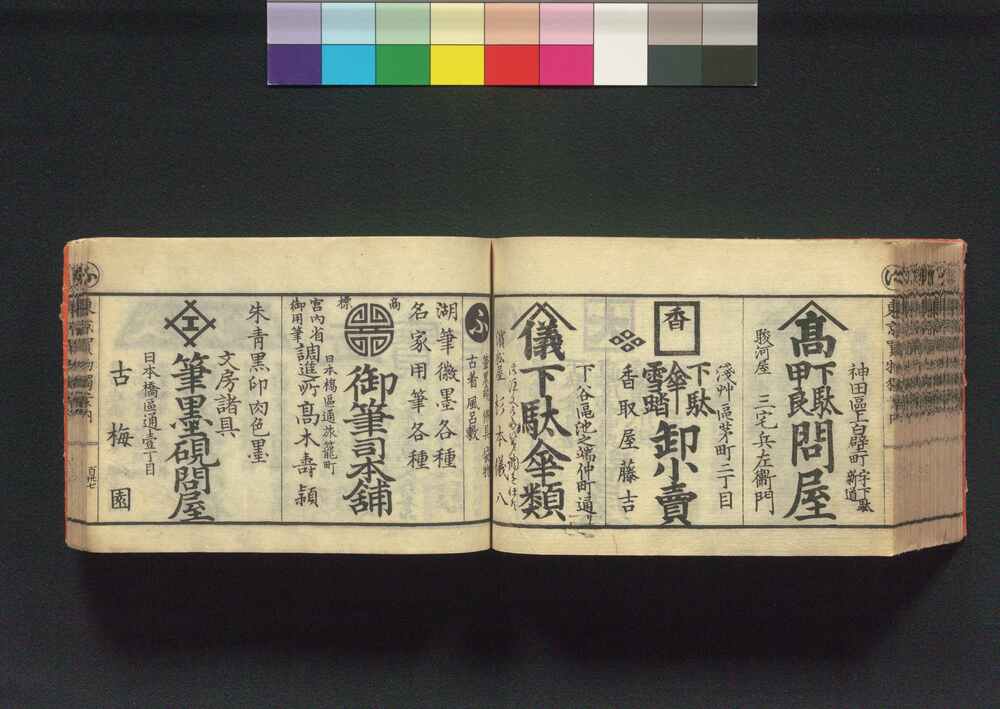 東京買物獨案内
神田區上白壁町
字下駄
新道
髙
下駄
甲良
問屋
駿河屋　三宅兵左衞門
淺艸區茅町二丁目
香
下駄
傘
雪踏
卸小賣
香取屋藤吉
下谷區池之端仲町通り
儀
下駄傘類
濱松屋　杉本儀八
ふ
古着　風呂敷
湖筆徽墨各種
名家用筆各種
商
標
御筆司本舖
日本橋區通旅籠町
宮内省
御用筆
調進所　高木壽穎
朱青黒印肉色墨
文房諸具
工
筆墨硯問屋
日本橋區通壹丁目
古梅園
東京買物獨案内
ふ
百廿七